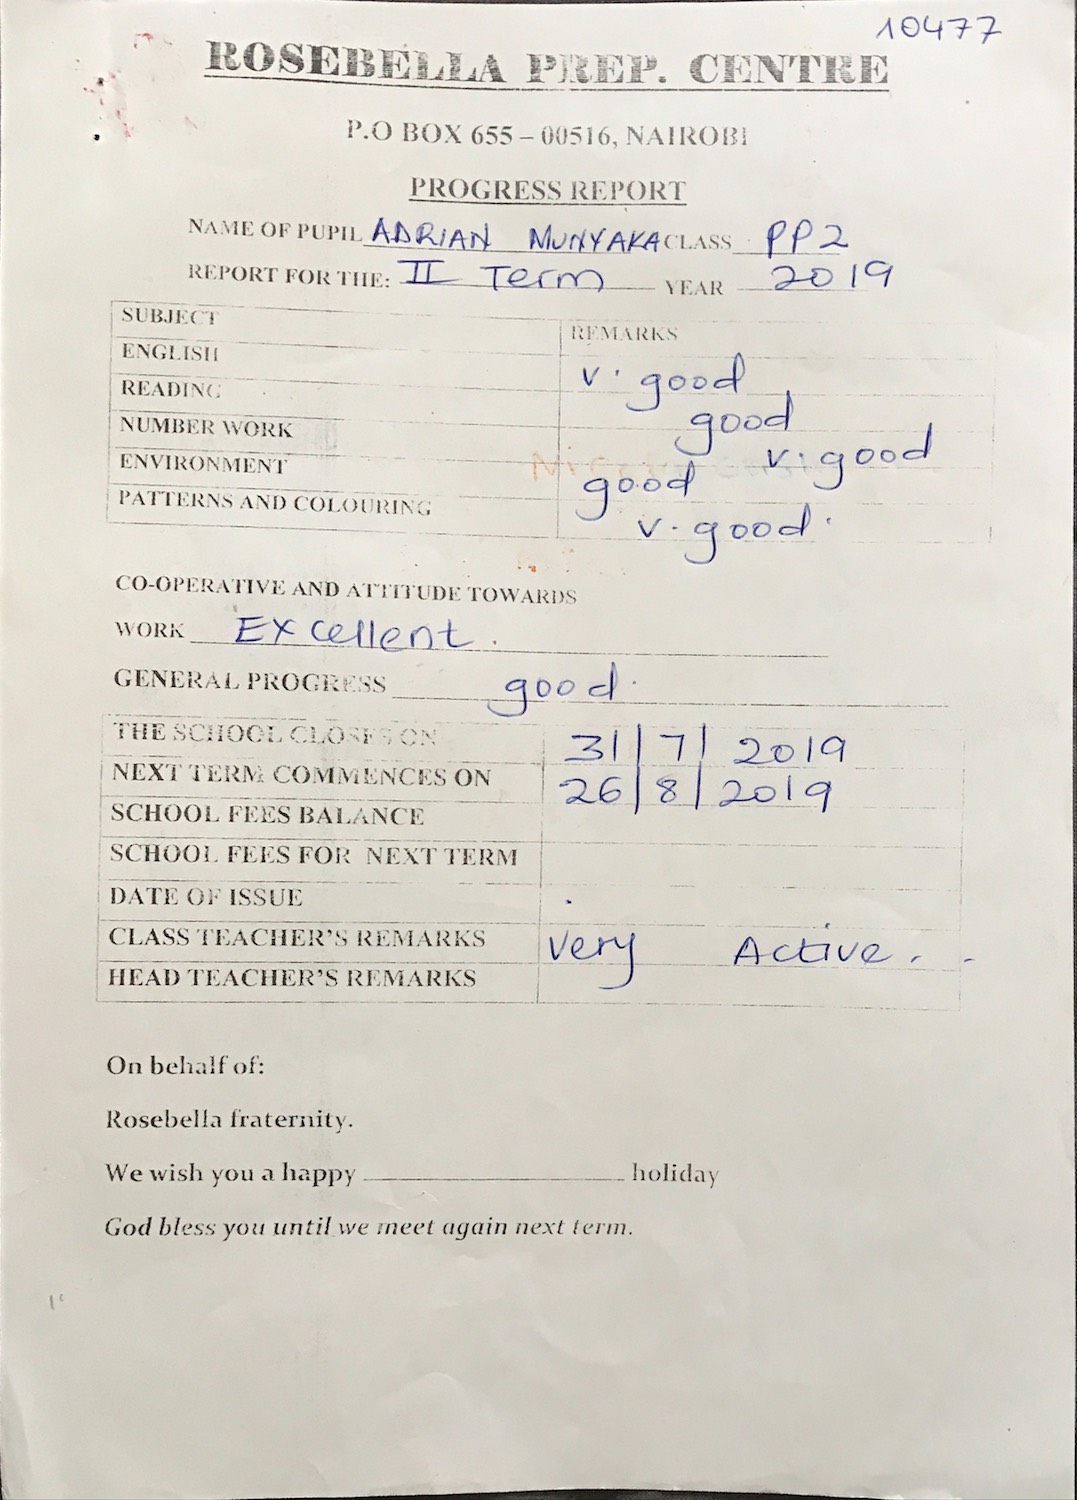 10477
ROSEBELLA PREP. CENTRE
P.O BOX 655 – 00516, NAIROBI
PROGRESS REPORT
NAME OF PUPIL ADRIAN MUNYAKA CLASS PP2
REPORT FOR THE: II Term YEAR 2019
SUBJECT REMARKS
ENGLISH v. good
READING good
NUMBER WORK v. good
ENVIRONMENT good
PATTERNS AND COLOURING v. good.
CO-OPERATIVE AND ATTITUDE TOWARDS
WORK Excellent.
GENERAL PROGRESS good.
THE SCHOOL CLOSES ON 31|7| 2019
NEXT TERM COMMENCES ON 26|8|2019
SCHOOL FEES BALANCE
SCHOOL FEES FOR NEXT TERM
DATE OF ISSUE
CLASS TEACHER'S REMARKS Very Active.
HEAD TEACHER'S REMARKS
On behalf of:
Rosebella fraternity.
We wish you a happy ____________ holiday
God bless you until we meet again next term.